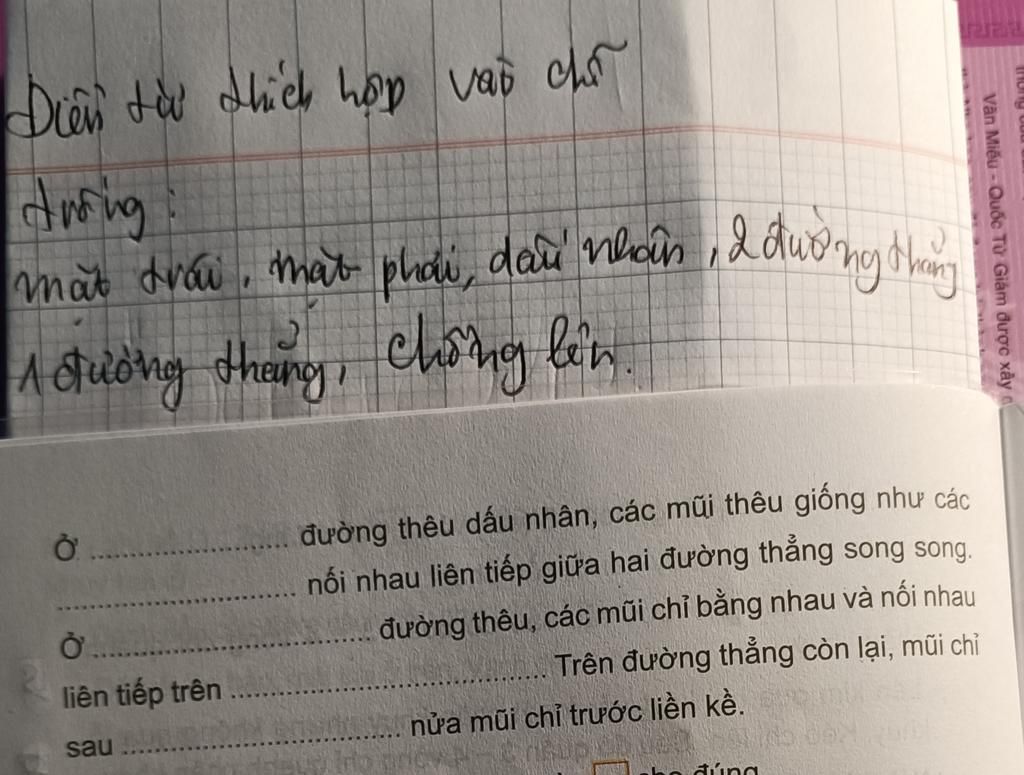 Điền từ thích hợp vào chỗ
trống:
mặt trái, mặt phải, dấu nhân, 2 đường thẳng
1 đường thẳng, chồng lên.
Ở ........................... đường thêu dấu nhân, các mũi thêu giống như các
................................ nối nhau liên tiếp giữa hai đường thẳng song song.
Ở ..................................... đường thêu, các mũi chỉ bằng nhau và nối nhau
liên tiếp trên .......................................... Trên đường thẳng còn lại, mũi chỉ
sau ..................................... nửa mũi chỉ trước liền kề.
đúng
Văn Miếu - Quốc Tử Giám được xây